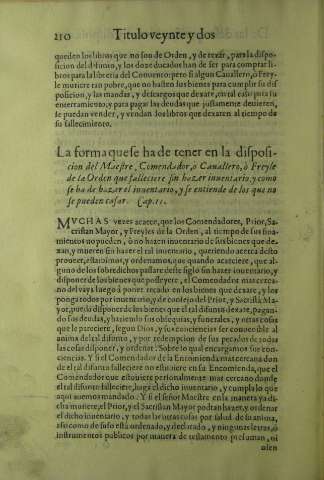 210 Titulo veynte y dos
queden los libros que no son de Orden, y de rezar, para la dispo-
sicion del difunto, y los doze ducados han de ser para comprar li-
bros para la libreria del Convento: pero si algun Cavallero, ò Frey-
le muriere tan pobre, que no basten los bienes para cumplir su dis
posicion, y las mandas, y descargos que dexare, en tal caso para su
enterramiento, y para pagar las deudas que justamente deuieren,
se puedan vender, y vendan los libros que dexaren al tiempo de
su fallecimiento.
La forma que se ha de tener en la disposi-
cion del Maestre, Comendador, ò Cavallero, ò Freyle
de la Orden que falleciere sin hazer inventario, y como
se ha de hazer el inventario, y se entiende de los que no
se pueden casar. Cap. 11.
MVCHAS vezes acaece, que los Comendadores, Prior, Sa-
cristan Mayor, y Freyles de la Orden, al tiempo de sus fina-
mientos no pueden, ò no hazen inventario de sus bienes que de-
xan, y mueren sin hazer el tal inventario, queriendo acerca desto
proueer, estatuimos, y ordenamos, que quando acaeciere, que al-
guno de los sobredichos passare deste siglo sin hazer inventario, y
disponer de los bienes que posseyere, el Comendador mas cerca-
no del vaya luego à poner recado en los bienes que dexare, y los
ponga todos por inventario, y de consejo del Prior, y Sacristã Ma-
yor, pueda disponer de los bienes que el tal difunto dexare, pagan-
do sus deudas, y haziendo sus obsequias, y funerales, y otras cosas
que le pareciere, segun Dios, y sus conciencias ser convenible al
anima del tal difunto, y por redempcion de sus pecados de todas
las cosas disponer, y ordenar. Sobre lo qual encargamos sus con-
ciencias. Y si el Comendador de la Encomienda mas cercana don
de el tal difunto falleciere no estuviere en su Encomienda, que el
Comendador que estuviere personalmente mas cercano donde
el tal difunto falleciere, haga el dicho inventario, y cumpla lo que
aqui auemos mandado. Y si el señor Maestre en la manera ya di-
cha muriere, el Prior, y el Sacristan Mayor podran hazer, y ordenar
el dicho inventario, y todas las otras cosas por salud de su anima,
assi como de suso està ordenado, y declarado, y ningunas letras, ò
instrumentos publicos por manera de testamento presuman, ni